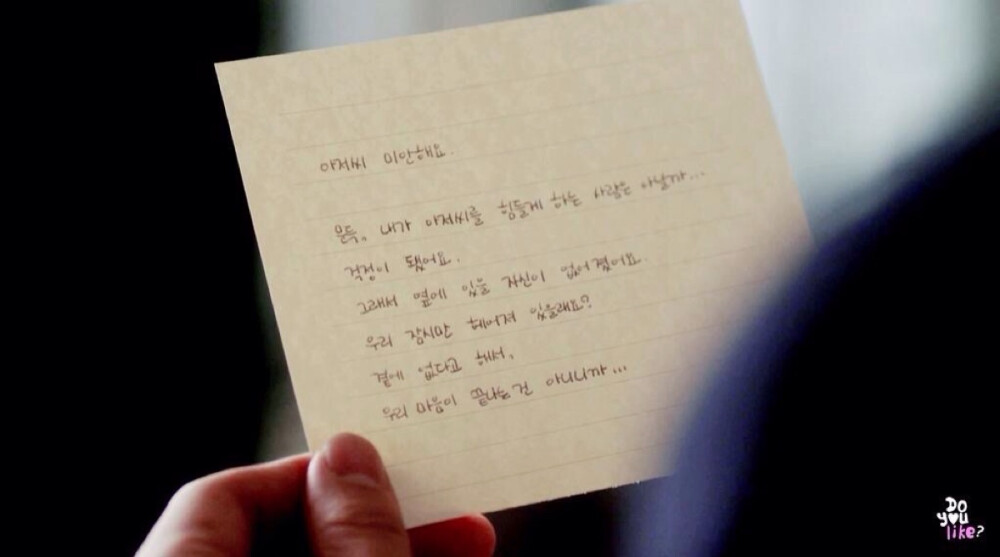 아저씨 미안해요.
문득, 내가 아저씨를 힘들게 하는 사람은 아닐까...
걱정이 됐어요.
그래서 옆에 있을 자신이 없어졌어요.
우리 잠시만 헤어져 있을래요?
곁에 없다고 해서,
우리 마음이 끝나는 건 아니니까...
DO
you
like?